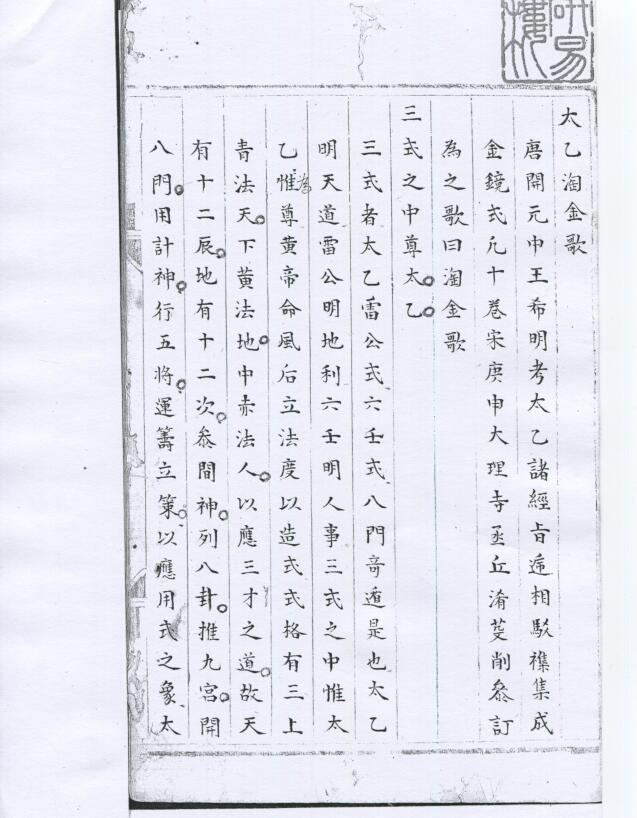 太乙淘金歌
唐開元中王希明考太乙諸經旨遞相駁襍集成
金鏡式凡十卷宋庚申大理寺丞丘濬芟削叅訂
為之歌曰淘金歌
三式之中尊太乙
三式者太乙雷公式六壬式八門竒遁是也太乙
明天道雷公明地利六壬明人事三式之中惟太
乙惟為尊黄帝命風后立法度以造式式格有三上
青法天下黄法地中赤法人以應三才之道故天
有十二辰地有十二次叅間神列八卦推九宮開
八門用計神行五將運籌立策以應用式之象太